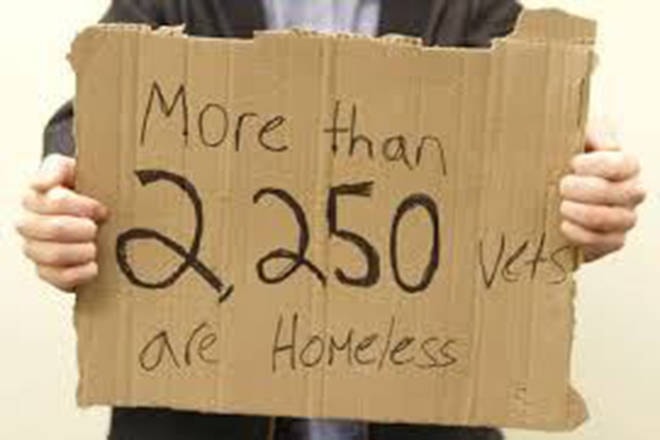 More than
2,250 vets
are Homeless